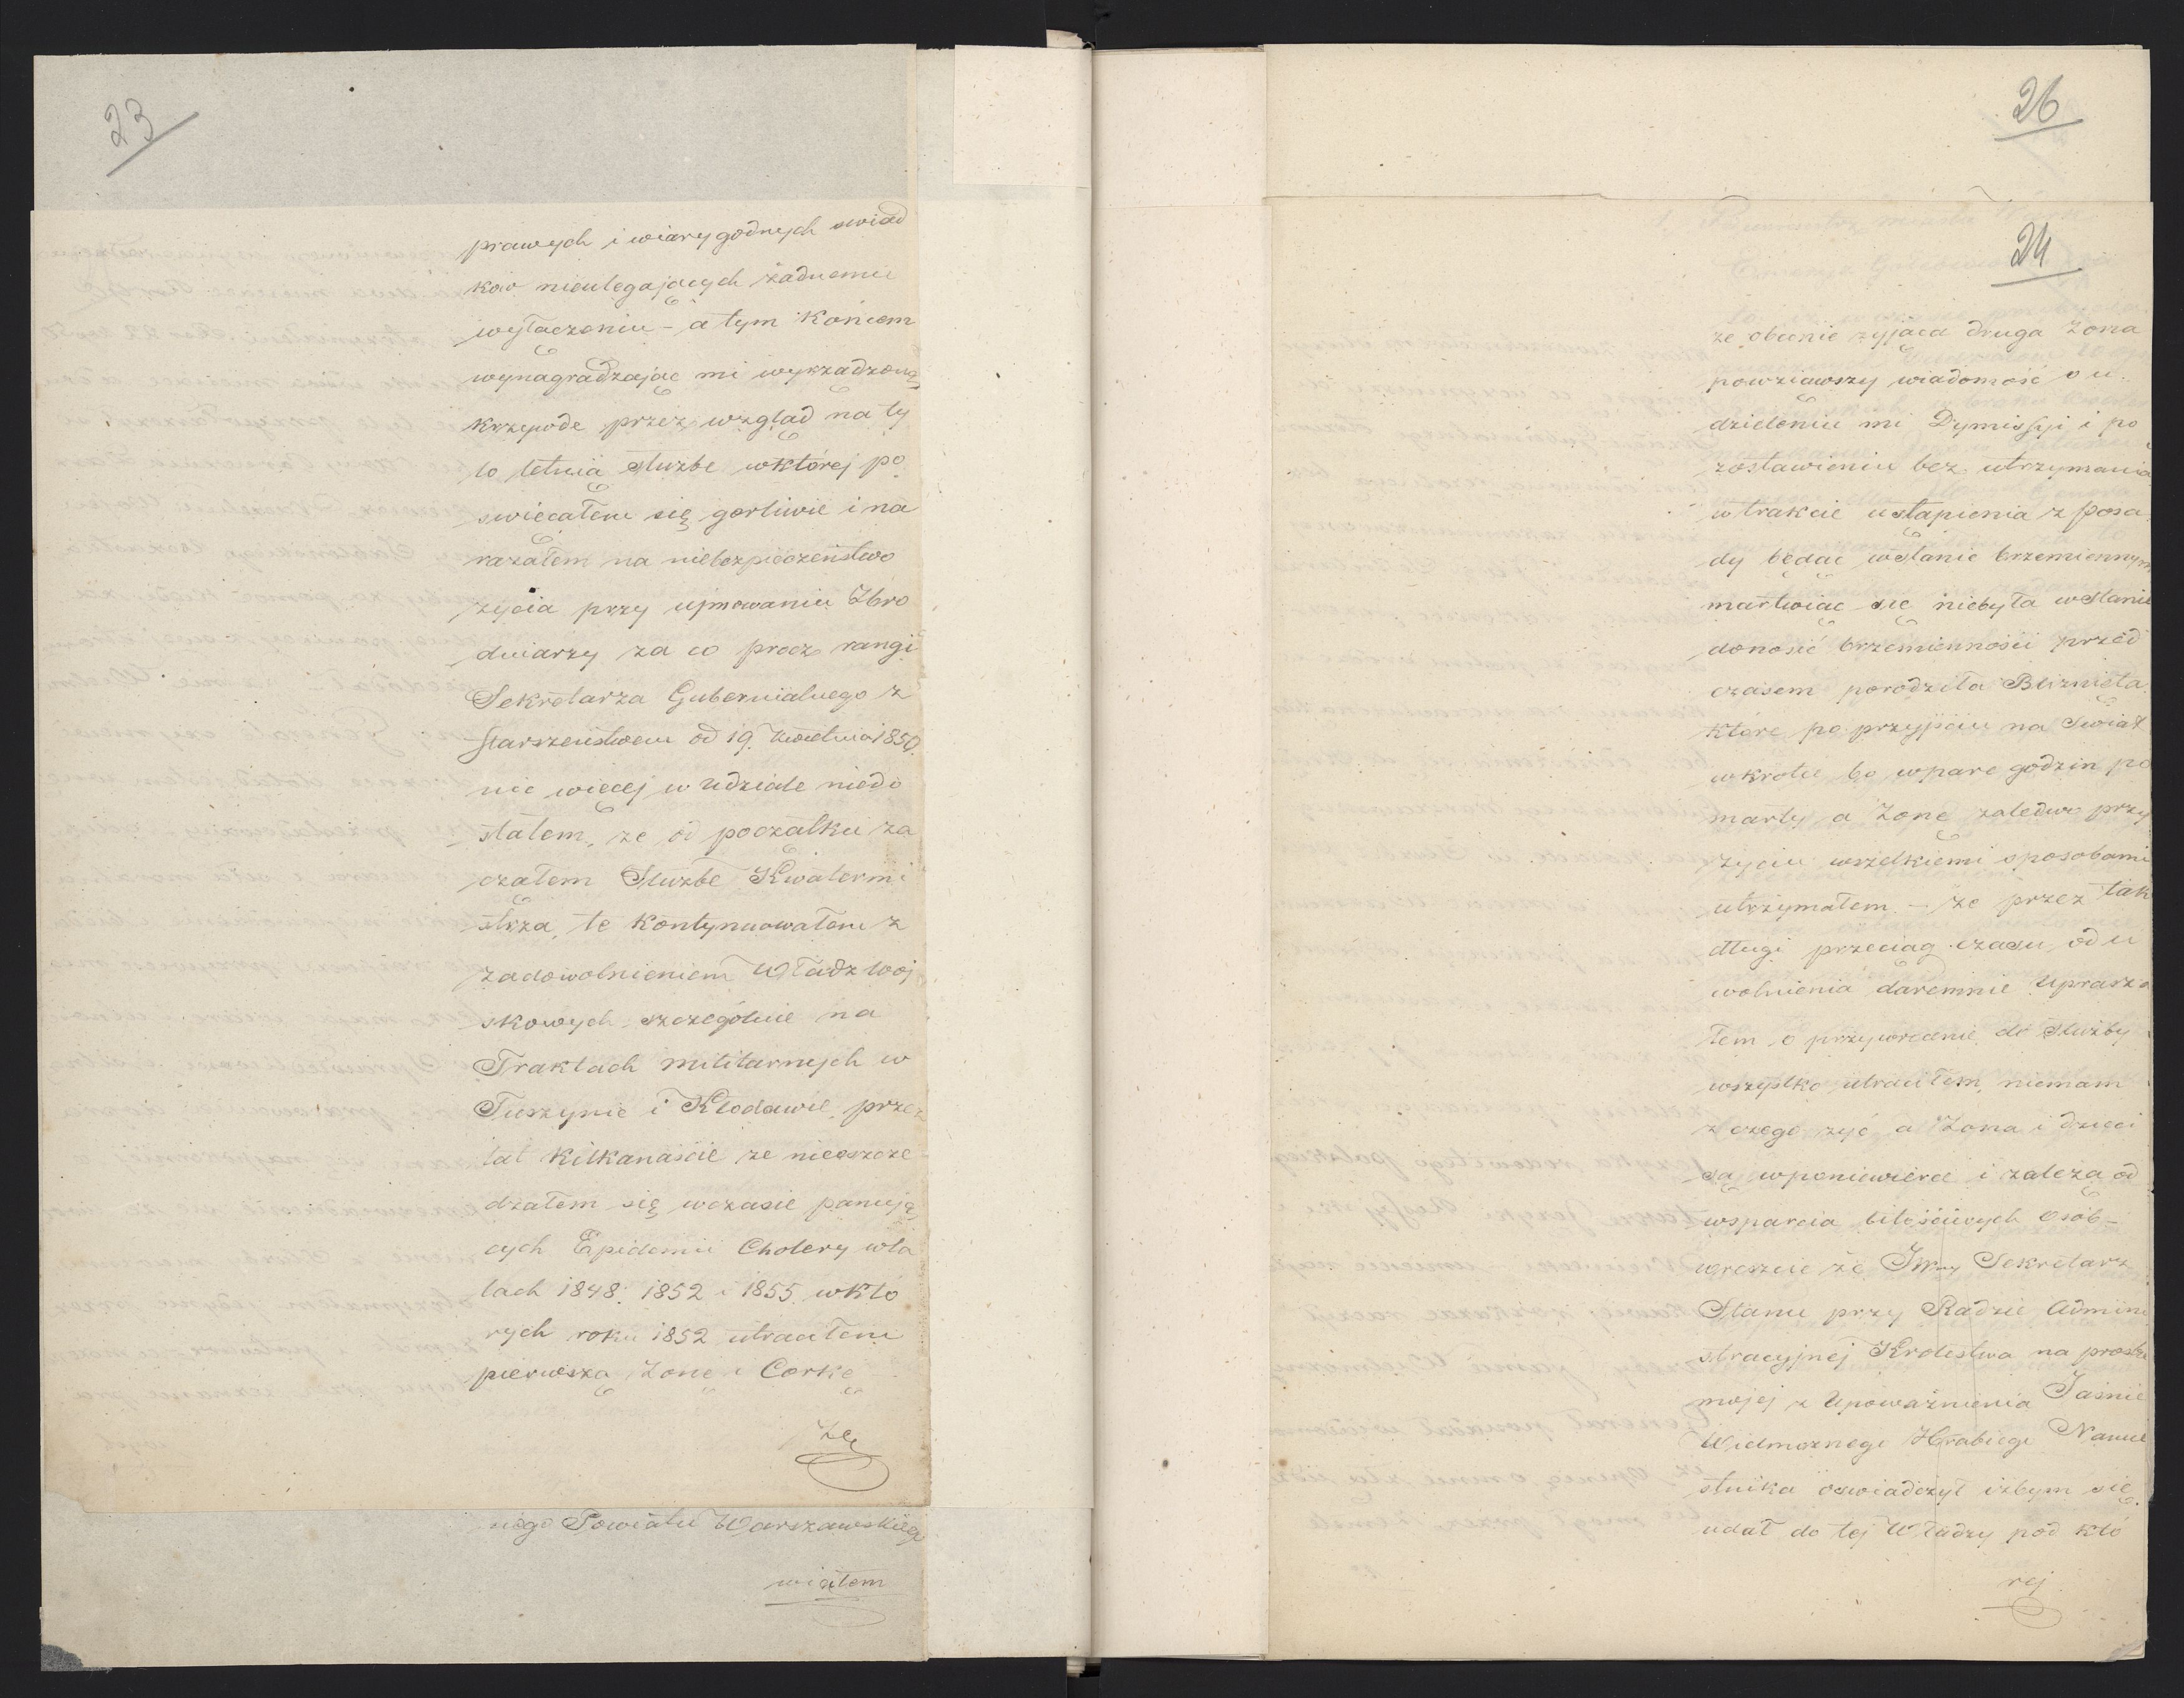 23
prawych i wiarygodnych swiad
kow nieulegających żadnemu
wyłączeniu – a tym końcem
wynagradzając mi wyrządzoną
krzywdę przez wzgląd na ty
lo letnią służbę w której po
swięcałem się gorliwie i na
rażałem na niebezpieczeństwo
życia przy ujmowaniu Zbro
dniarzy za co procz rangi
Sekretarza Gubernialnego z
starszeństwem od 19. Kwietnia 1850.
nic więcej w udziale niedo
stałem, że od początku za
czałem Służbę Kwatermi
strza, te kontynuowałem z
zadowolnieniem Władz Woj
skowych szczególnie na
Traktach militarnych w
Tuszynie i Kłodawie, przez
lat kilkanaście ze nieoszczę
dzałem się w czasie panują
cych Epidemii Cholery w la
tach 1848. 1852 i 1855. w któ
rych roku 1852 utraciłem
pierwszą Zonę i Corkę –
Ze
nego Powiatu Warszawskiego
wiałem
26
24
ze obecnie żyjąca druga Zona
powziąwszy wiadomość o u
dzieleniu mi Dymissyi i po
zostawieniu bez utrzymania
w trakcie ustąpienia z posa
dy będąc w stanie brzemiennym
martwiąc się niebyła w stanie
donosić brzemienności przed
czasem porodziła Bliznięta
które po przyjściu na Swiat
wkrotce bo w parę godzin po
marły a Zonę zaledwo przy
życiu wszelkiemi sposobami
utrzymałem. – że przez tak
długi przeciąg czasu od u
wolnienia daremnie uprasza
łem o przywrocenie do Służby
wszystko utraciłem, niemam
z czego żyć a Zona i dzieci
są w poniewierce i zależą od
wsparcia litościwych osób –
wreszcie że JWny Sekretarz
Stanu przy Radzie Admini
stracyjnej Krolestwa na prosbę
mojej z Upoważnienia Jaśnie
Wielmożnego Hrabiego Namie
stnika oswiadczył iżbym się
udał do tej Władzy pod któ
rej